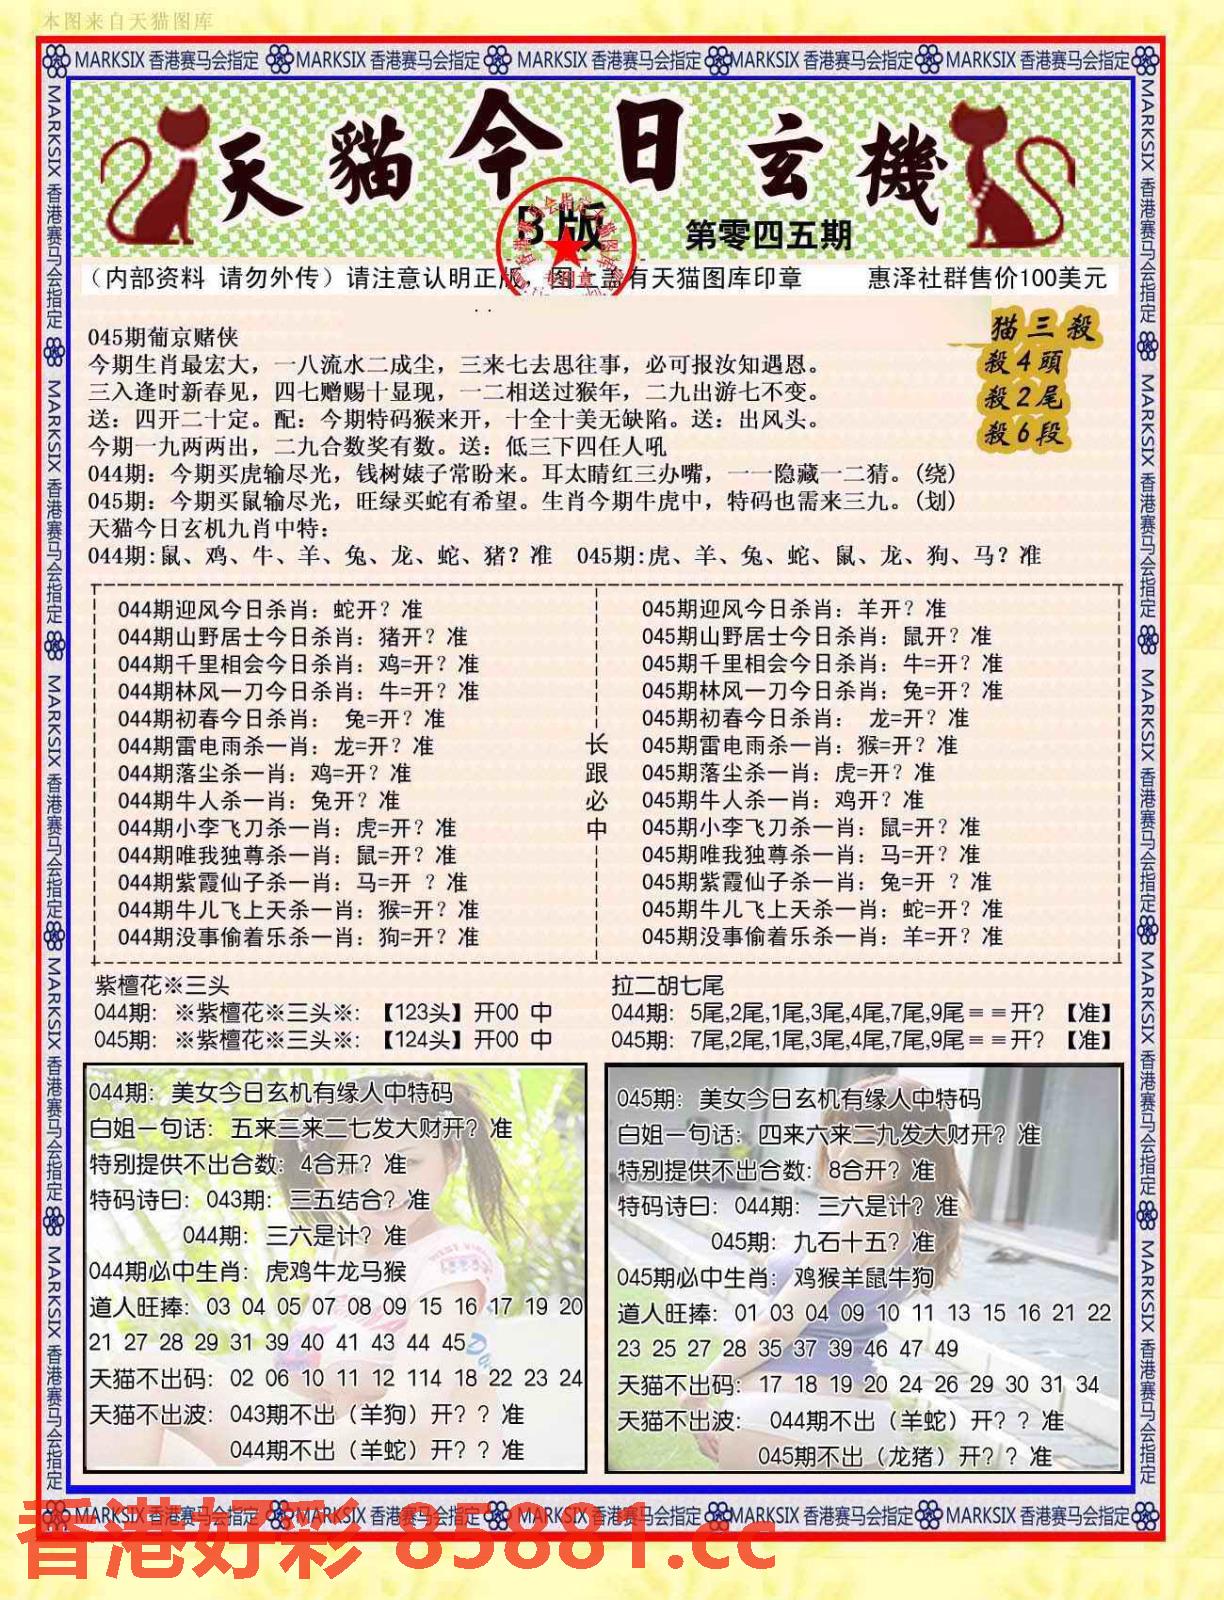 本图来自天猫图库
MARKSIX 香港赛马会指定 MARKSIX 香港赛马会指定 MARKSIX 香港赛马会指定 MARKSIX 香港赛马会指定 MARKSIX 香港赛马会指定
MARKSIX 香港赛马会指定 MARKSIX 香港赛马会指定 MARKSIX 香港赛马会指定 MARKSIX 香港赛马会指定 MARKSIX 香港赛马会指定
MARKSIX 香港赛马会指定 MARKSIX 香港赛马会指定 MARKSIX 香港赛马会指定 MARKSIX 香港赛马会指定 MARKSIX 香港赛马会指定
天貓今日玄機
B版
第零四五期
（内部资料 请勿外传）请注意认明正版 图上盖有天猫图库印章 惠泽社群售价100美元
猫三殺
殺4頭
殺2尾
殺6段
045期葡京赌侠
今期生肖最宏大，一八流水二成尘，三来七去思往事，必可报汝知遇恩。
三入逢时新春见，四七赠赐十显现，一二相送过猴年，二九出游七不变。
送：四开二十定。配：今期特码猴来开，十全十美无缺陷。送：出风头。
今期一九两两出，二九合数奖有数。送：低三下四任人吼
044期：今期买虎输尽光，钱树婊子常盼来。耳太晴红三办嘴，一一隐藏一二猜。(绕)
045期：今期买鼠输尽光，旺绿买蛇有希望。生肖今期牛虎中，特码也需来三九。(划)
天猫今日玄机九肖中特：
044期:鼠、鸡、牛、羊、兔、龙、蛇、猪？准 045期:虎、羊、兔、蛇、鼠、龙、狗、马？准
044期迎风今日杀肖：蛇开？准
044期山野居士今日杀肖：猪开？准
044期千里相会今日杀肖：鸡=开？准
044期林风一刀今日杀肖：牛=开？准
044期初春今日杀肖： 兔=开？准
044期雷电雨杀一肖：龙=开？准
044期落尘杀一肖：鸡=开？准
044期牛人杀一肖：兔开？准
044期小李飞刀杀一肖：虎=开？准
044期唯我独尊杀一肖：鼠=开？准
044期紫霞仙子杀一肖：马=开 ？准
044期牛儿飞上天杀一肖：猴=开？准
044期没事偷着乐杀一肖：狗=开？准
长跟必中
045期迎风今日杀肖：羊开？准
045期山野居士今日杀肖：鼠开？准
045期千里相会今日杀肖：牛=开？准
045期林风一刀今日杀肖：兔=开？准
045期初春今日杀肖： 龙=开？准
045期雷电雨杀一肖：猴=开？准
045期落尘杀一肖：虎=开？准
045期牛人杀一肖：鸡开？准
045期小李飞刀杀一肖：鼠=开？准
045期唯我独尊杀一肖：马=开？准
045期紫霞仙子杀一肖：兔=开 ？准
045期牛儿飞上天杀一肖：蛇=开？准
045期没事偷着乐杀一肖：羊=开？准
紫檀花※三头
044期：※紫檀花※三头※：【123头】开00 中
045期：※紫檀花※三头※：【124头】开00 中
拉二胡七尾
044期：5尾,2尾,1尾,3尾,4尾,7尾,9尾＝＝开？【准】
045期：7尾,2尾,1尾,3尾,4尾,7尾,9尾＝＝开？【准】
044期：美女今日玄机有缘人中特码
白姐一句话：五来三来二七发大财开？准
特别提供不出合数：4合开？准
特码诗曰：043期：三五结合？准
044期：三六是计？准
044期必中生肖：虎鸡牛龙马猴
道人旺捧：03 04 05 07 08 09 15 16 17 19 20
21 27 28 29 31 39 40 41 43 44 45
天猫不出码：02 06 10 11 12 114 18 22 23 24
天猫不出波：043期不出（羊狗）开？？准
044期不出（羊蛇）开？？准
045期：美女今日玄机有缘人中特码
白姐一句话：四来六来二九发大财开？准
特别提供不出合数：8合开？准
特码诗曰：044期：三六是计？准
045期：九石十五？准
045期必中生肖：鸡猴羊鼠牛狗
道人旺捧：01 03 04 09 10 11 13 15 16 21 22
23 25 27 28 35 37 39 46 47 49
天猫不出码：17 18 19 20 24 26 29 30 31 34
天猫不出波： 044期不出（羊蛇）开？？准
045期不出（龙猪）开？？准
MARKSIX 香港赛马会指定 MARKSIX 香港赛马会指定 MARKSIX 香港赛马会指定 MARKSIX 香港赛马会指定 MARKSIX 香港赛马会指定
香港好彩 85881.cc